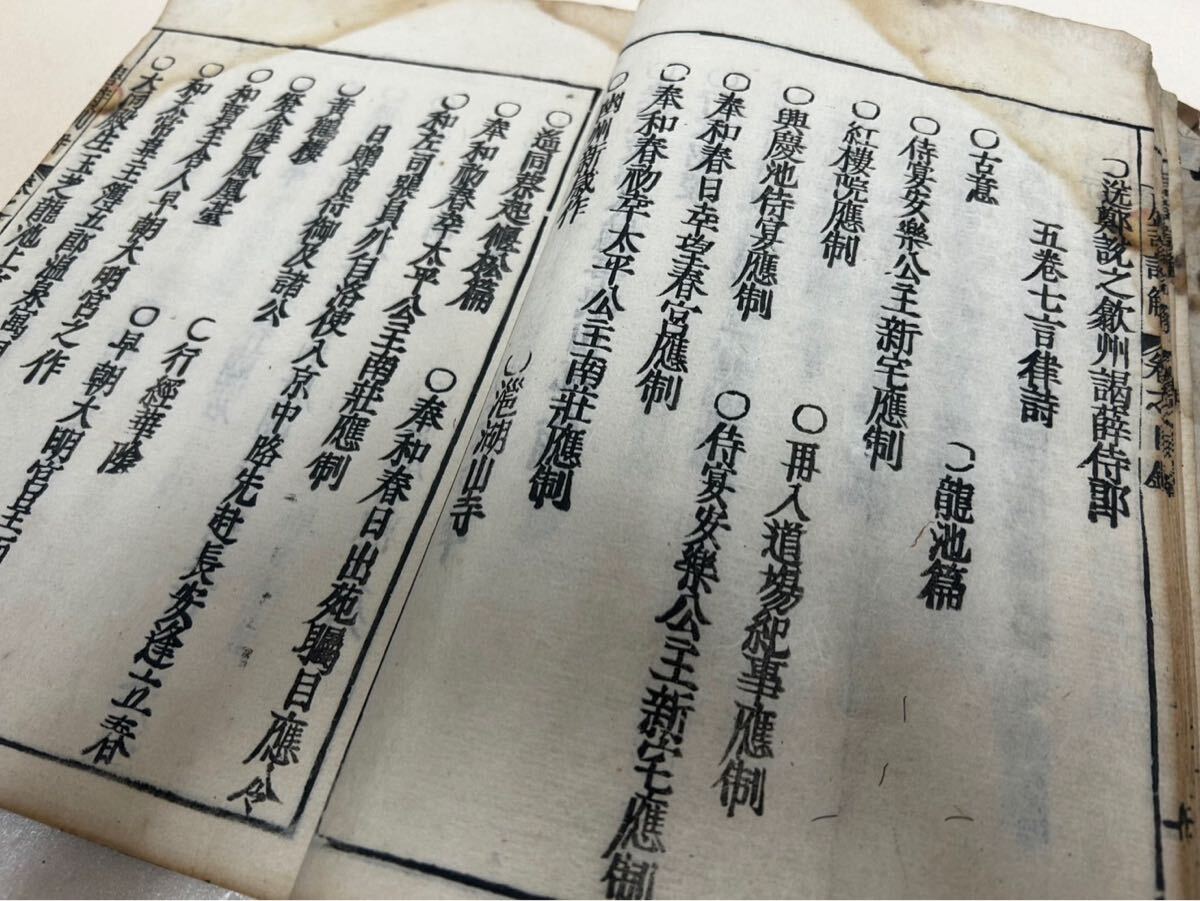 ○洗鄭說之歙州謁薛侍郎
五卷七言律詩
○古意 ○龍池篇
○侍宴安樂公主新宅應制
○紅樓院應制 ○再入道場紀事應制
○興慶池侍宴應制 ○侍宴安樂公主新宅應制
○奉和春日幸望春宮應制
○奉和春初幸太平公主南莊應制
○幽州新歲作 ○㴩湖山寺
○遙同蔡起偃松篇
○奉和初春幸太平公主南莊應制
○奉和春日出苑矚目應令
○和左司張員外自洛使入京中路先赴長安逢立春
日贈韋侍御及諸公
○黃鶴樓 ○行經華陰
○登金陵鳳凰臺 ○早朝大明宮呈
○和賈至舍人早朝大明宮之作
○和太常韋主簿五郎溫泉寓目
○大同殿生玉芝龍池上